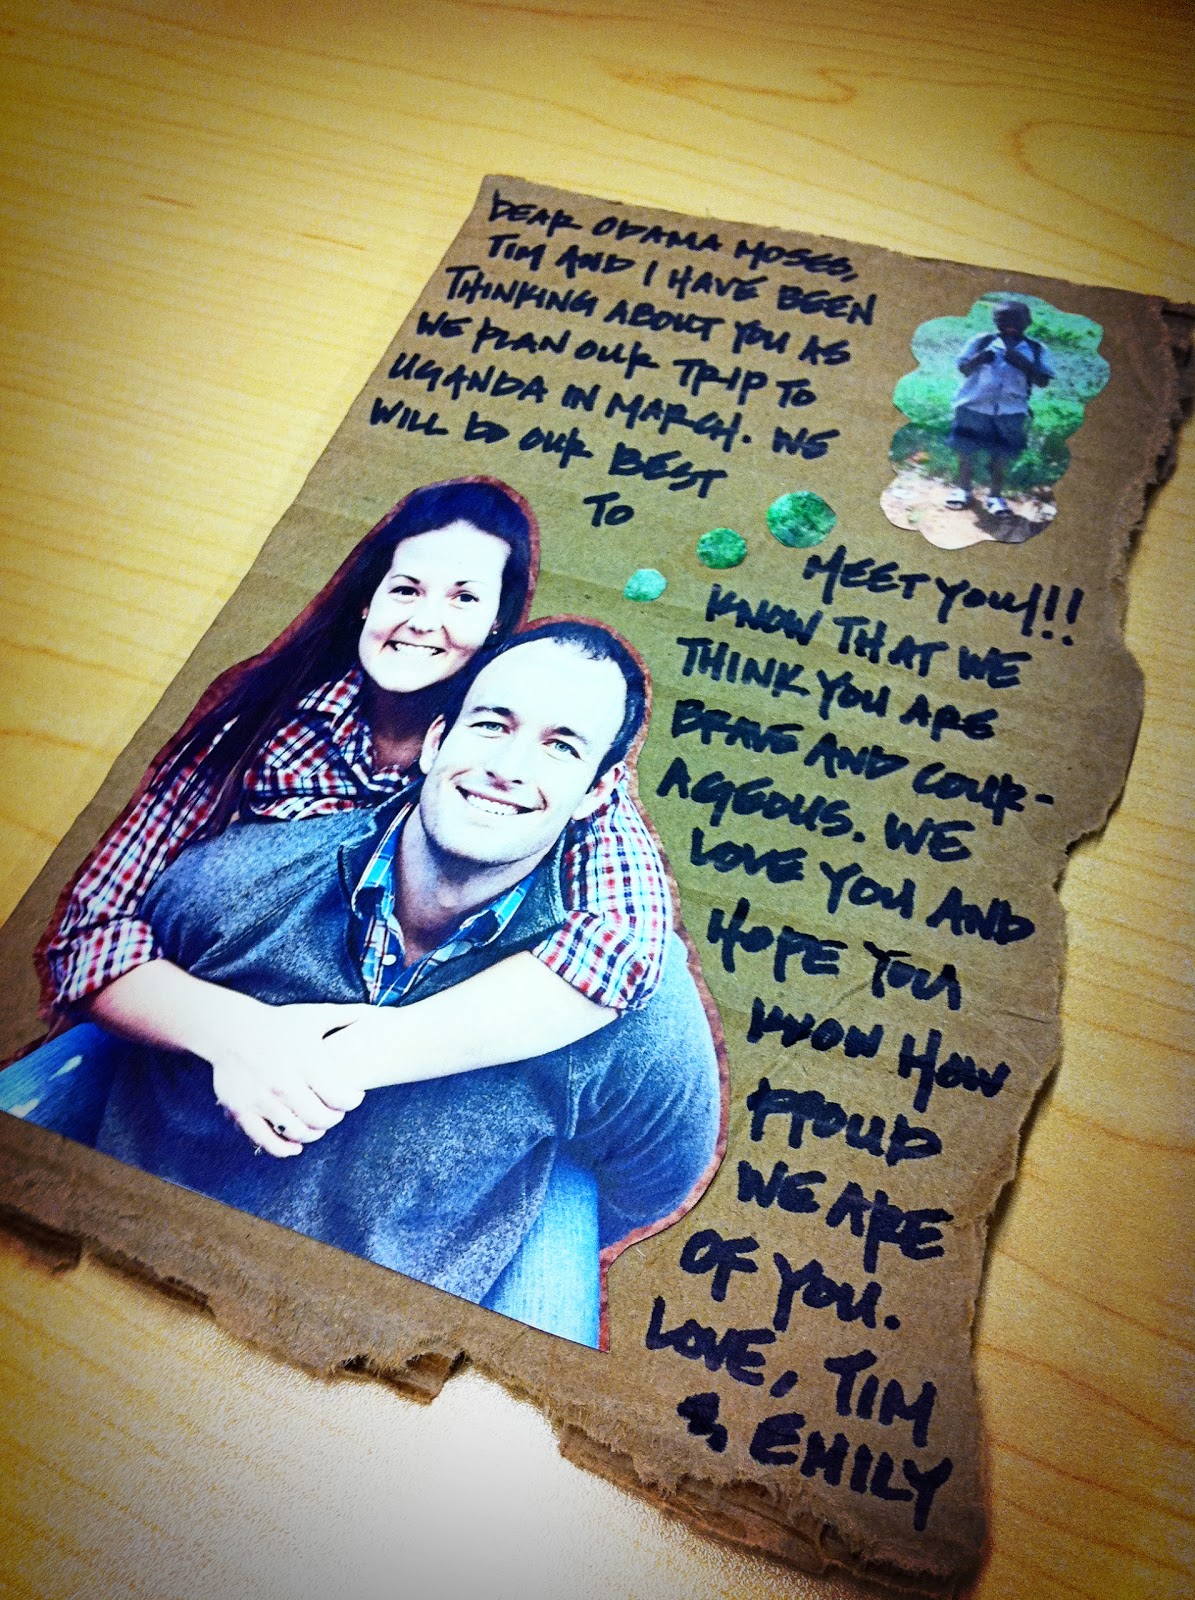 DEAR ODAMA MOSES,
TIM AND I HAVE BEEN
THINKING ABOUT YOU AS
WE PLAN OUR TRIP TO
UGANDA IN MARCH. WE
WILL DO OUR BEST
TO
MEET YOU!!!
KNOW THAT WE
THINK YOU ARE
BRAVE AND COUR-
AGEOUS. WE
LOVE YOU AND
HOPE YOU
KNOW HOW
PROUD
WE ARE
OF YOU.
LOVE, TIM
& EMILY